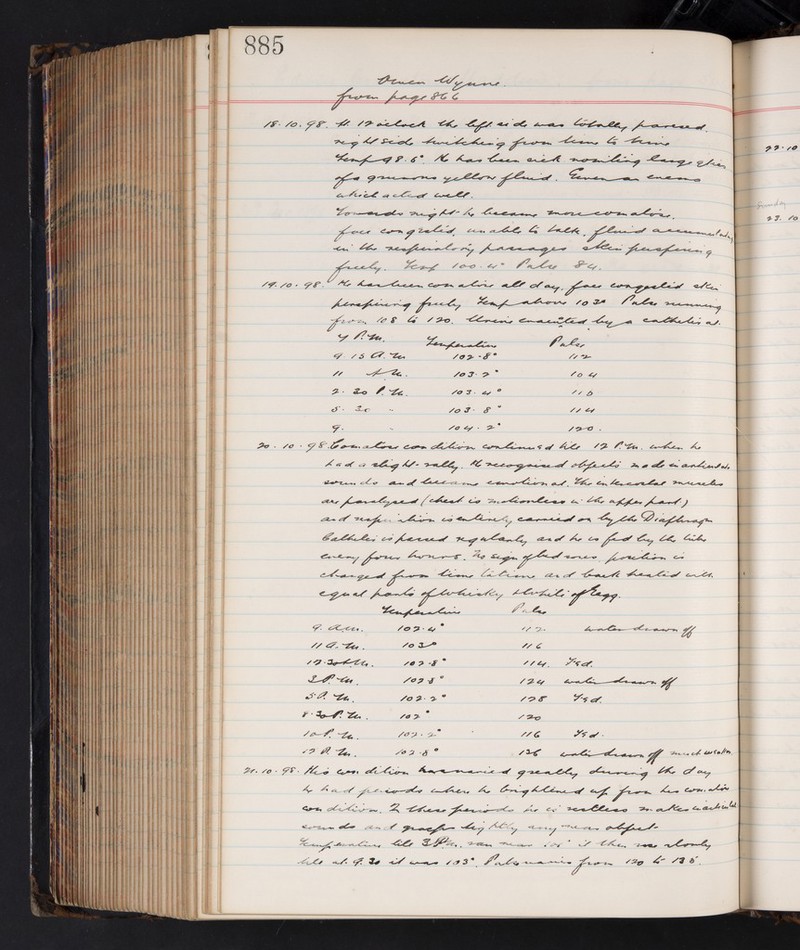 885
Owen Wynne.
from page 866
18.10.98. At 12 oclock the left side was totally paresed.
right side twitching from time to time
Temp 98.6° He has been sick vomiting large qties
of a grumous yellow fluid. Given an enema
which acted well.
Towards night he became more comatose.
face congested, unable to talk, fluid accumulating
in the respiratory passages skin perspiring
freely. Temp 100.4° Pulse 84.
19.10.98. He has been comatose all day, face congested skin
perspiring freely Temp above 103° Pulse running
from 108 to 120. Urine evacuated by a catheter at
P.M. Temperature Pulse
9.15 A.M 102.8° 112
11 A.M. 103.2° 104
2.30 P.M. 103.4° 110
5.30 " 103.8° 114
9. " 104.2° 120.
20.10.98 Comatose condition continued till 12 P.M. when he
had a slight rally. He recognised objects made inarticulate
sounds and became emotional. The intercostal muscles
are paralysed (chest is motionless in the upper part)
and respiration is entirely carried on by the Diaphragm
Catheter is passed regularly and he is fed by the tube
every four hours. No sign of bed sores, position is
changed from time to time and back treated with
equal parts of whisky & white of egg.
Temperature Pulse
9. A.M. 102.4° 112 water drawn off
11 A.M. 103° 116
12.30 P.M. 102.8° 114. Fed.
3 P.M. 102.8° 124 water drawn off
5 P.M. 102.2° 128 Fed.
8.30 P.M. 102° 120
10 P.M. 102.2° 116 Fed.
12 P.M. 102.8° 126 water drawn off
21.10.98. His condition has varied greatly during the day
he had periods when he brightened up from his comatose
condition. In these periods he is restless makes inarticulate
sounds and grasps tightly any near object
Temperature till 3 P.M. ran near it then rose slowly
till at 9.30 it was 103°. Pulse varies from 120 to 135.
22.10
Sunday
23.10